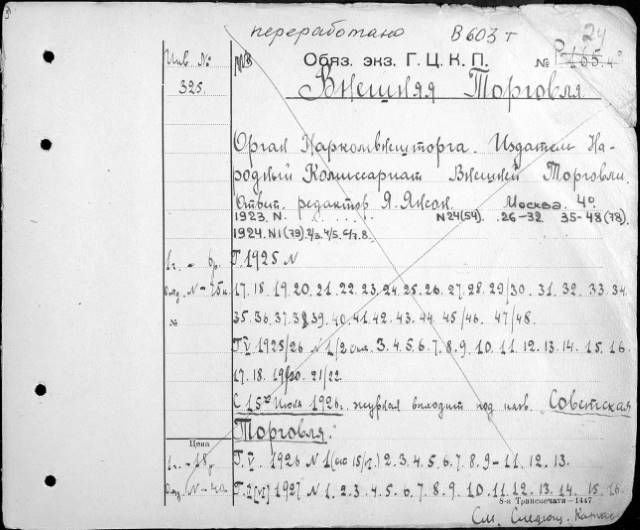 переработано В 603 т 24
Инв. № Обяз. экз. Г. Ц. К. П. №
325. Внешняя Торговля
Орган Наркомвнешторга. Издатель На-
родный Комиссариат Внешней Торговли.
Ответ. редактор Я. Янсон. Москва. 4º.
1923. N. N24(54). 26-32 35-48(78).
1924. N1(79). 2/3. 4/5. 6/7. 8.
1г. - 6р. Г. 1925 N
N - 25к 17. 18. 19. 20. 21. 22. 23. 24. 25. 26. 27. 28. 29/30. 31. 32. 33. 34.
№ 35. 36. 37. 38. 39. 40. 41. 42. 43. 44. 45/46. 47/48.
Г. V 1925/26 N 1/2 3. 4. 5. 6. 7. 8. 9. 10. 11. 12. 13. 14. 15. 16.
17. 18. 19/20. 21/22
С 15го Июля 1926. журнал выходит под назв. Советская
Торговля.
Цена
1г. - 18р. Г. V. 1926 N 1 2. 3. 4. 5. 6. 7. 8. 9-11. 12. 13.
N - 40 1927 N 1. 2. 3. 4. 5. 6. 7. 8. 9. 10. 11. 12. 13. 14. 15. 16.
8-я Транспечати—1447
См. Следующ.